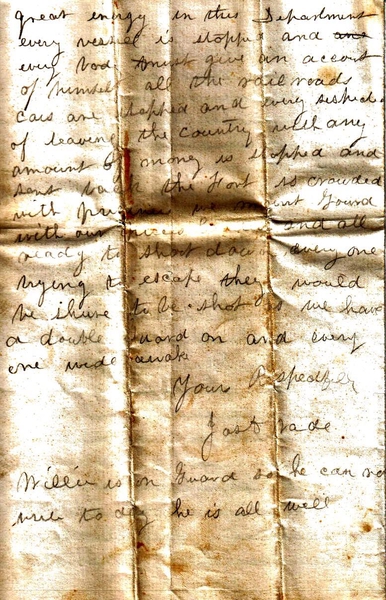 great energy in this Department
every vessel is stopped and
every bod must give an account
of himself all the railroads
cars are stopped and every
of leaveing the country with any
amount of money is stopped and
sent back the Fort is crowded
with we mount Gaurd
with our and all
ready to shoot down everyone
trying to escape they would
be shure to be shot as we have
a double guard on and every
one wide awake
Your
Willie is on Guard so he can no
write to day he is all well